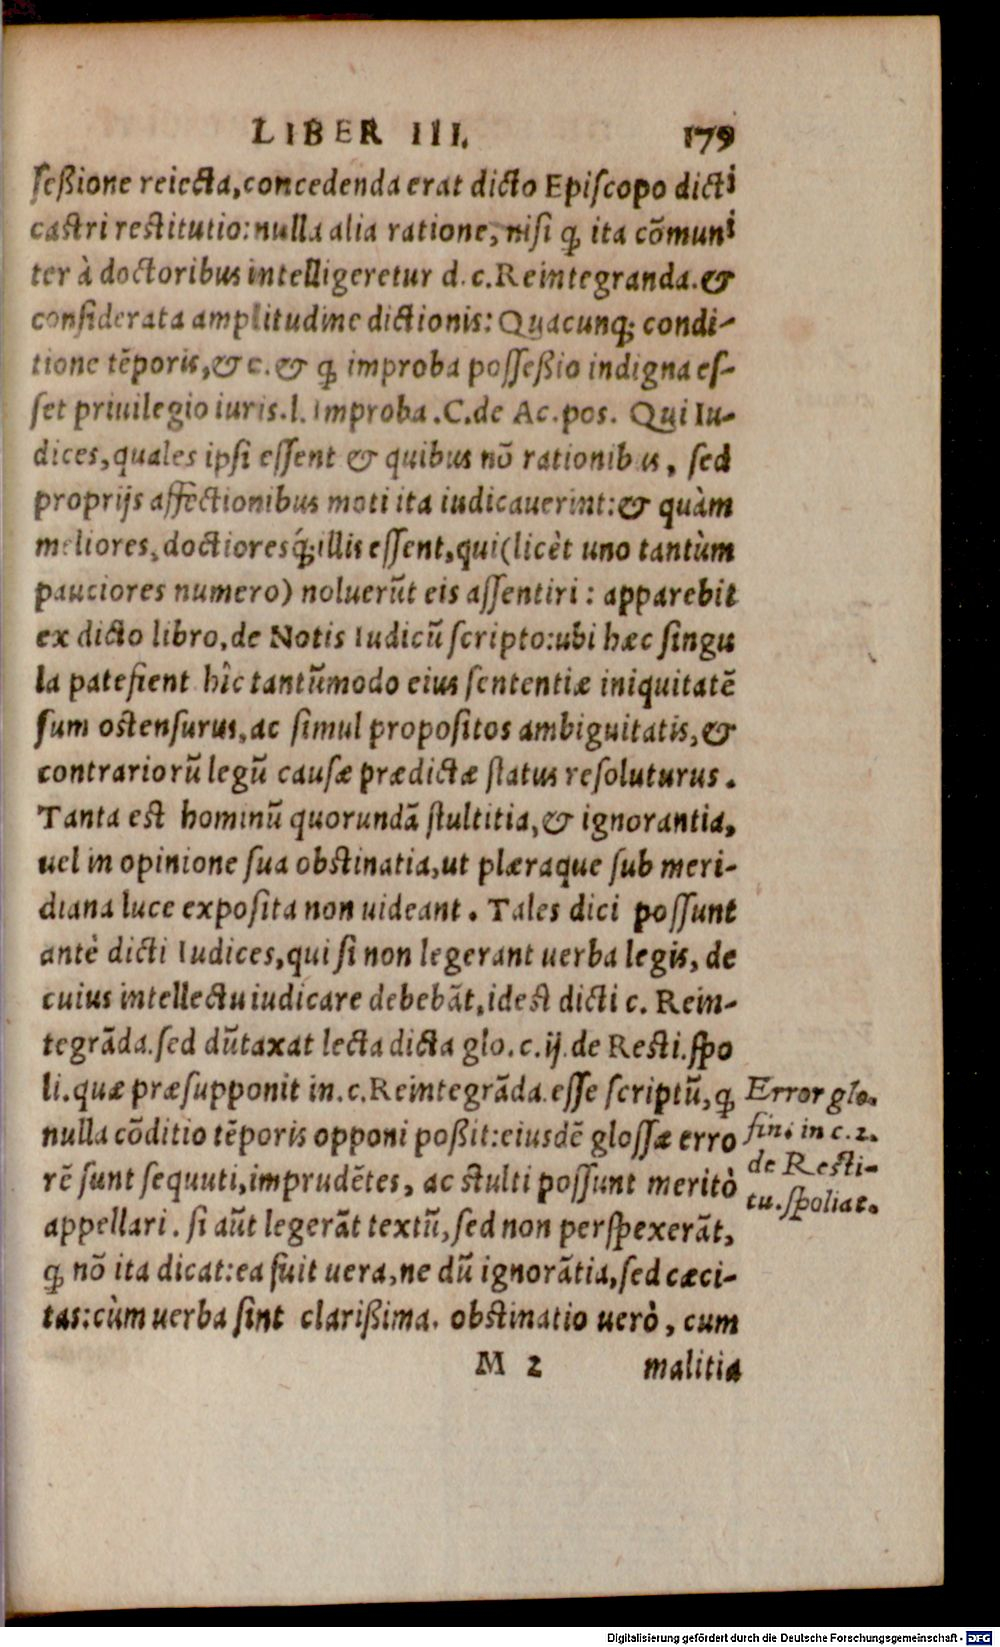 LIBER III. 179
ſeßione reiecta, concedenda erat dicto Epiſcopo dicti
castri restitutio: nulla alia ratione, niſi ꝙ ita cõmuni
ter à doctoribus intelligeretur d. c. Reintegranda. &
conſiderata amplitudine dictionis: Quacunq; condi-
tione tẽporis, & c. & ꝙ improba poſſeßio indigna eſ-
ſet priuilegio iuris. l. Improba. C. de Ac. pos. Qui Iu-
dices, quales ipſi eſſent & quibus nõ rationibus, ſed
proprijs affectionibus moti ita iudicauerint: & quàm
meliores, doctioresq́; illis eſſent, qui (licèt uno tantùm
pauciores numero) noluerũt eis aſſentiri: apparebit
ex dicto libro, de Notis Iudicũ ſcripto: ubi hæc ſingu
la patefient hîc tantũmodo eius ſententiæ iniquitatẽ
ſum ostenſurus, ac ſimul propoſitos ambiguitatis, &
contrariorũ legũ cauſæ prædictæ ſtatus reſoluturus.
Tanta est hominũ quorundã ſtultitia, & ignorantia,
uel in opinione ſua obstinatia, ut plæraque ſub meri-
diana luce expoſita non uideant. Tales dici poſſunt
antè dicti Iudices, qui ſi non legerant uerba legis, de
cuius intellectu iudicare debebãt, idest dicti c. Rein-
tegrãda. ſed dũtaxat lecta dicta glo. c. ij. de Resti. ſpo
li. quæ præſupponit in. c. Reintegrãda. eſſe ſcriptũ, ꝙ
nulla cõditio tẽporis opponi poßit: eiuſdẽ gloſſæ erro
rẽ ſunt ſequuti, imprudẽtes, ac stulti poſſunt meritò
appellari. ſi aũt legerãt textũ, ſed non perſpexerãt,
ꝙ nõ ita dicat: ea fuit uera, ne dũ ignorãtia, ſed cæci-
tas: cùm uerba ſint clarißima. obstinatio uerò, cum
M 2 malitia
Error glo.
fin. in c. 2.
de Resti-
tu. ſpoliat.
Digitalisierung gefördert durch die Deutsche Forschungsgemeinschaft - DFG